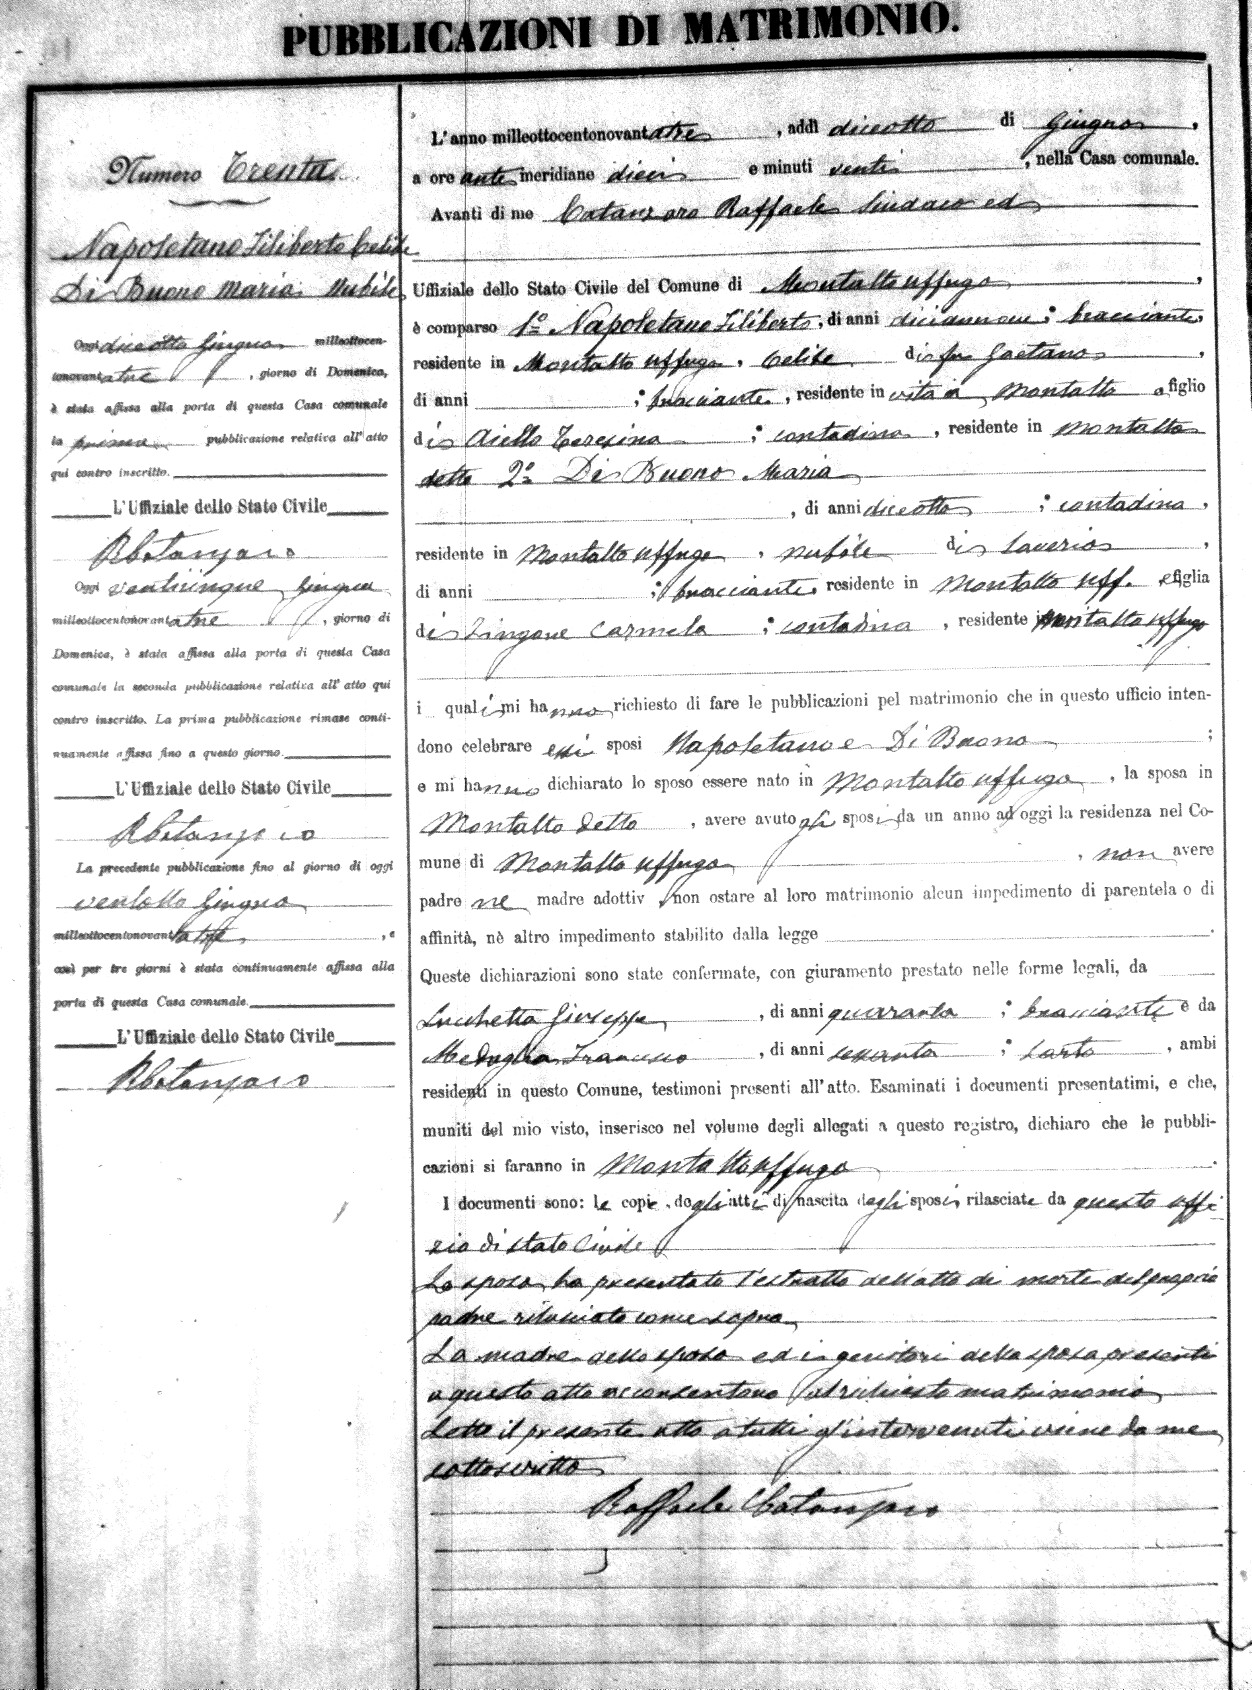 PUBBLICAZIONI DI MATRIMONIO.
Numero Trenta
Napoletano Filiberto Celibe
Di Buono Maria Nubile
Oggi diciotto Giugno milleottocen-
tonovantatre, giorno di Domenica,
è stata affissa alla porta di questa Casa comunale
la prima pubblicazione relativa all'atto
qui contro inscritto.
L'Uffiziale dello Stato Civile
RCatanzaro
Oggi venticinque Giugno
milleottocentonovantatre, giorno di
Domenica, è stata affissa alla porta di questa Casa
comunale la seconda pubblicazione relativa all'atto qui
contro inscritto. La prima pubblicazione rimase conti-
nuamente affissa fino a questo giorno.
L'Uffiziale dello Stato Civile
RCatanzaro
La precedente pubblicazione fino al giorno di oggi
ventotto Giugno
milleottocentonovantatre, e
così per tre giorni è stata continuamente affissa alla
porta di questa Casa comunale.
L'Uffiziale dello Stato Civile
RCatanzaro
L'anno milleottocentonovantatre, addì diciotto di Giugno,
a ore antemeridiane dieci e minuti venti, nella Casa comunale.
Avanti di me Catanzaro Raffaele Sindaco ed
Uffiziale dello Stato Civile del Comune di Montalto Uffugo,
è comparso 1º Napoletano Filiberto, di anni diciannove; bracciante,
residente in Montalto Uffugo, Celibe di fu Gaetano,
di anni ; bracciante, residente in vita in Montalto figlio
di Aiello Teresina ; contadina, residente in Montalto
detto 2º Di Buono Maria
, di anni diciotto ; contadina,
residente in Montalto Uffugo, nubile di Saverio,
di anni ; bracciante, residente in Montalto Uff. e figlia
di Lingone Carmela ; contadina, residente in Montalto Uffugo
i quali mi hanno richiesto di fare le pubblicazioni pel matrimonio che in questo ufficio inten-
dono celebrare essi sposi Napoletano e Di Buono ;
e mi hanno dichiarato lo sposo essere nato in Montalto Uffugo, la sposa in
Montalto detto, avere avuto gli sposi da un anno ad oggi la residenza nel Co-
mune di Montalto Uffugo, non avere
padre nè madre adottiv , non ostare al loro matrimonio alcun impedimento di parentela o di
affinità, nè altro impedimento stabilito dalla legge .
Queste dichiarazioni sono state confermate, con giuramento prestato nelle forme legali, da
Lucchetta Giuseppe, di anni quaranta ; bracciante e da
Meduglia Francesco, di anni sessanta ; sarto, ambi
residenti in questo Comune, testimoni presenti all'atto. Esaminati i documenti presentatimi, e che,
muniti del mio visto, inserisco nel volume degli allegati a questo registro, dichiaro che le pubbli-
cazioni si faranno in Montalto Uffugo.
I documenti sono: le copie degli atti di nascita degli sposi, rilasciate da questo uffi-
zio di stato Civile
Lo sposo ha presentato l'estratto dell'atto di morte del proprio
padre rilasciato come sopra
La madre dello sposo ed i genitori della sposa presenti
a questo atto acconsentono al richiesto matrimonio
Letto il presente atto a tutti gl'intervenuti viene da me
sottoscritto
Raffaele Catanzaro